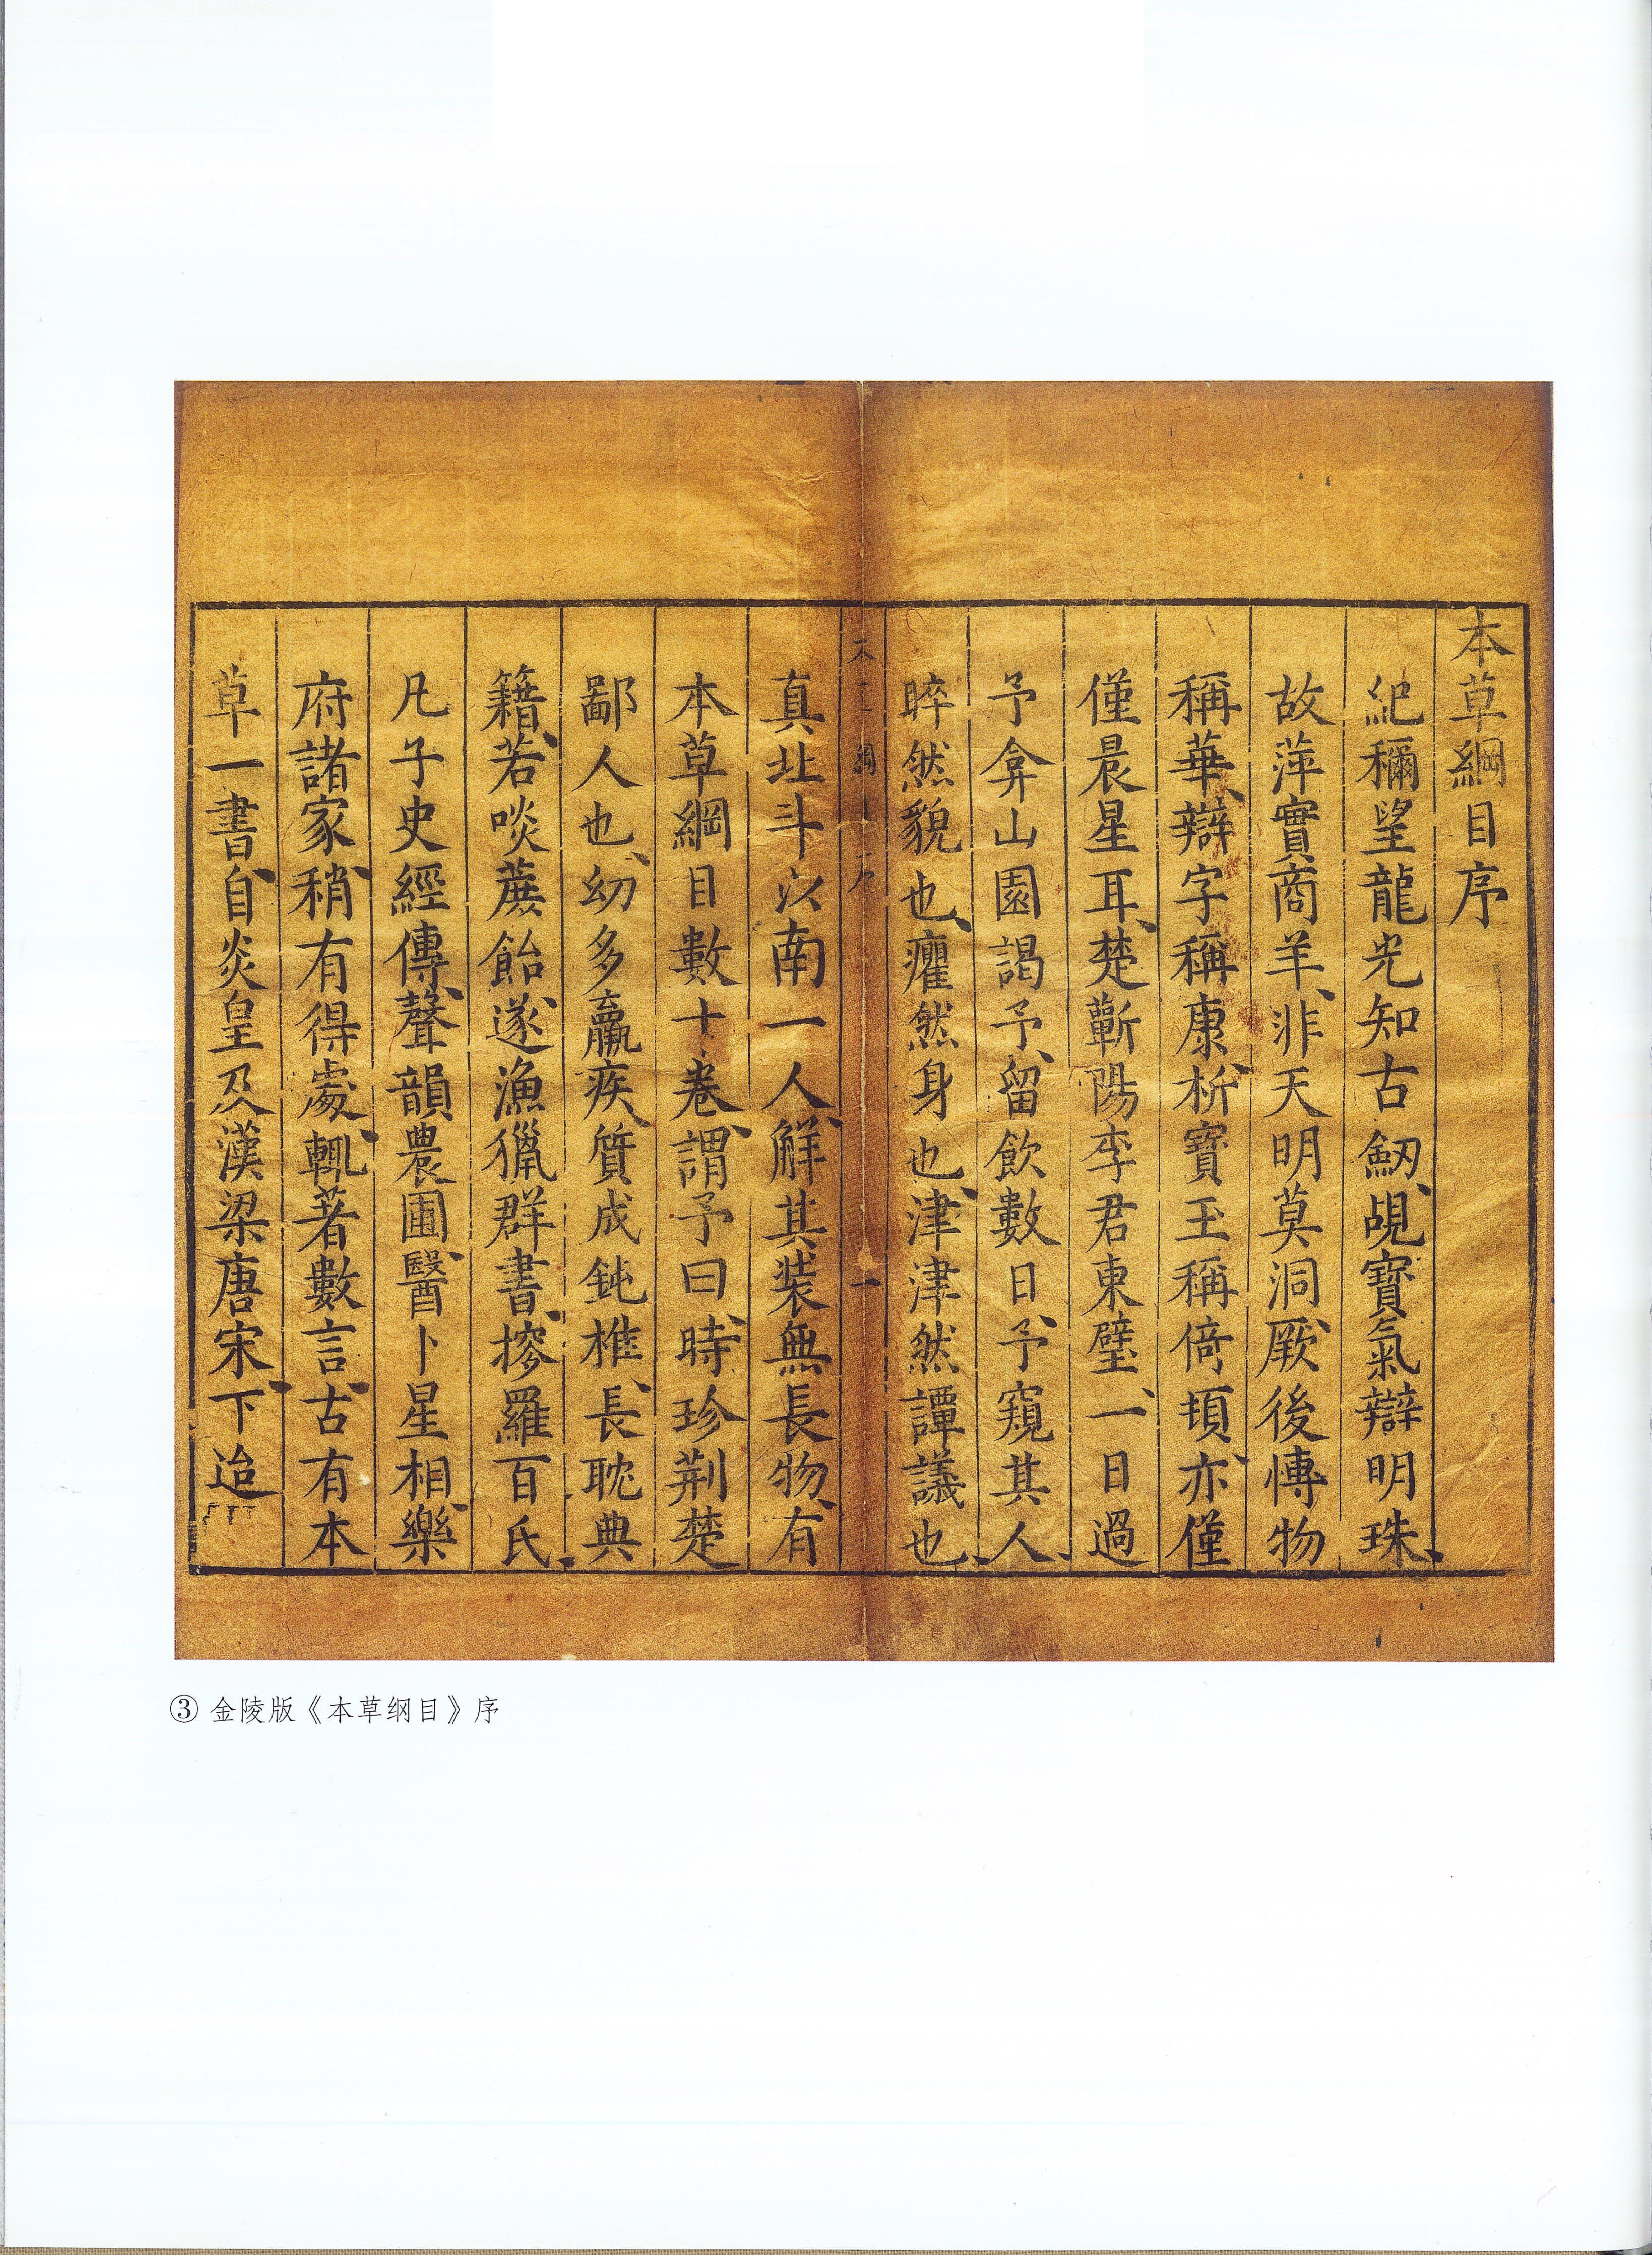 本草綱目序
紀稱望龍光知古劒、覘寶氣辯明珠、
故萍實商羊、非天明莫洞、厥後博物
稱華、辯字稱康、析寶玉稱倚頓、亦僅
僅晨星耳、楚蘄陽李君東璧、一日過
予弇山園謁予、留飲數日、予窺其人、
睟然貌也、癯然身也、津津然譚議也、
真北斗以南一人、解其装無長物、有
本草綱目數十卷、謂予曰、時珍荆楚
鄙人也、幼多羸疾、質成鈍椎、長耽典
籍、若啖蔗飴、遂漁獵群書、搜羅百氏、
凡子史經傳、聲韻農圃、醫卜星相、樂
府諸家、稍有得處、輒著數言、古有本
草一書、自炎皇及漢梁唐宋、下迨
綱
一
③ 金陵版《本草纲目》序